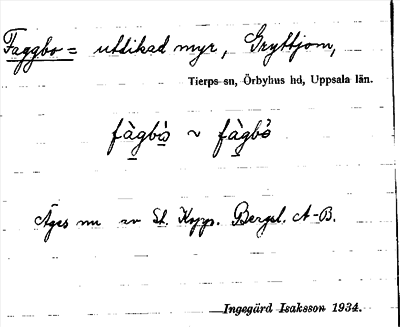 Faggbo = utdikad myr, Gryttjom,
Tierps sn, Örbyhus hd, Uppsala län.
fàgbò ~ fàgbo
Äges nu av St. Kopp. Bergsl. A-B.
Ingegärd Isaksson 1934.